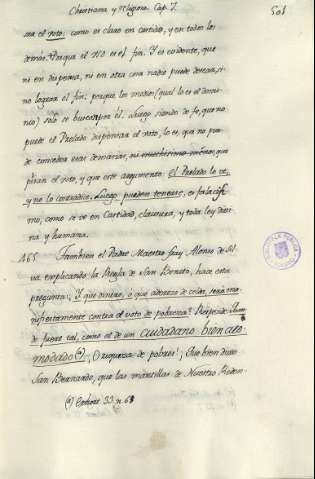 Christiana y Mogrra. Cap. I. 501
tra el voto: como es claro en Castidad, y en todos los
demás. Porque el no es el fin. Y es evidente, que
ni en dispensa, ni en otra cosa nadie puede desear, si-
no lograra el fin: porque los medios (qual lo es el domi-
nio) solo se buscan por él. Luego siendo de fe, que no
puede el Prelado dispensar el voto, lo es, que no pue-
da conceder usar de manías, ni
piran el voto, y que este argumento: el Prelado lo ve,
y no lo contradice, luego pueden tenerse, es falacísi-
mo, como se ve en Castidad, clausura, y toda ley divi-
na y humana.
465 Tambien el Padre Maestro fray Alonso de Sil-
va explicando la Regla de San Benito, hace esta
pregunta: Y que dinero, ó que aderezo de celda, será ma-
nifiestamente contra el voto de pobreza? Responde:
de fuera tal, como el de un ciudadano bien aco-
modado (a). O riqueza de pobres! Que bien dixo
San Bernardo, que las mantillas de Nuestro Reden-
(a) 33. n. 68